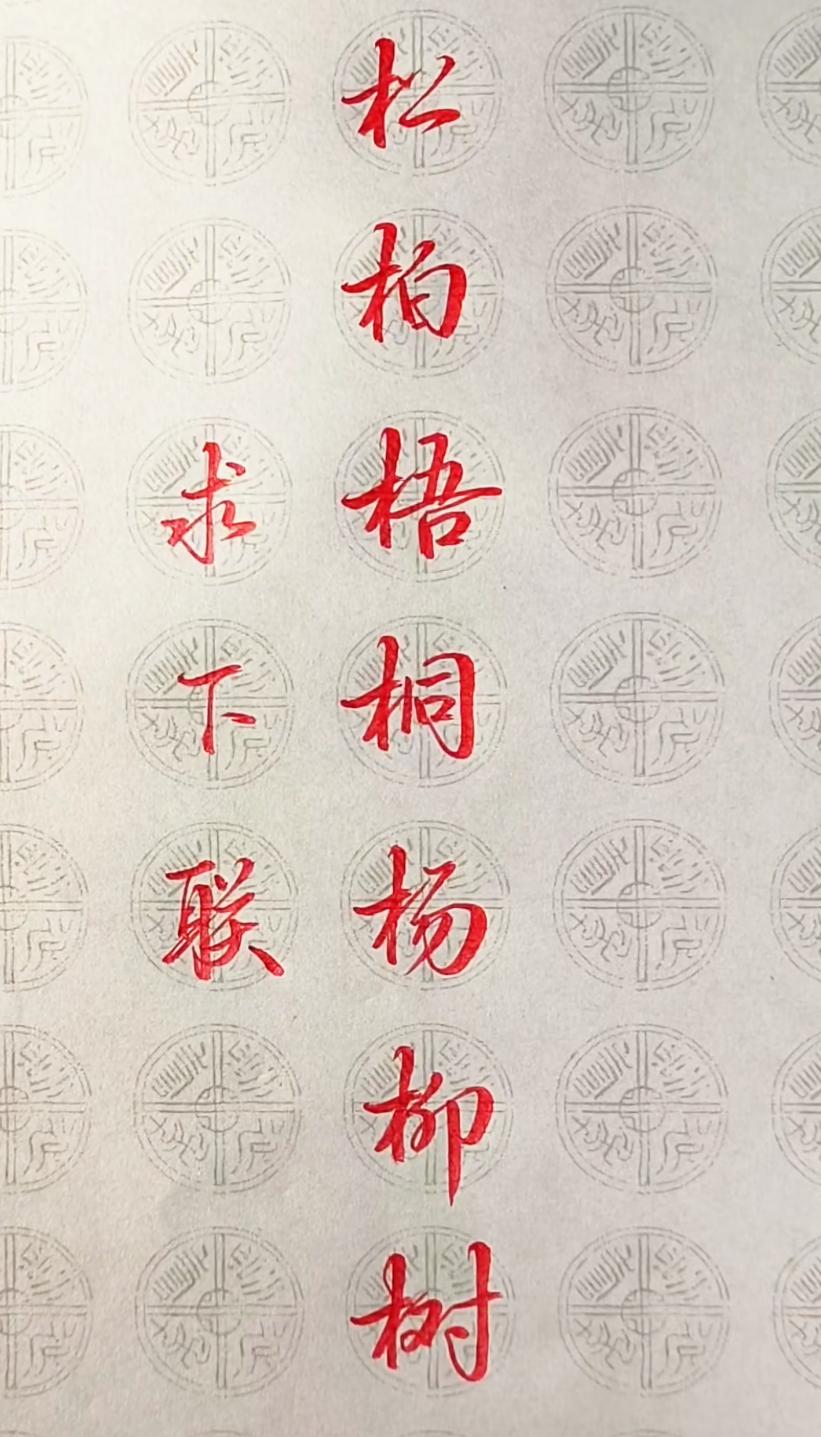 松柏梧桐杨柳树
求下联